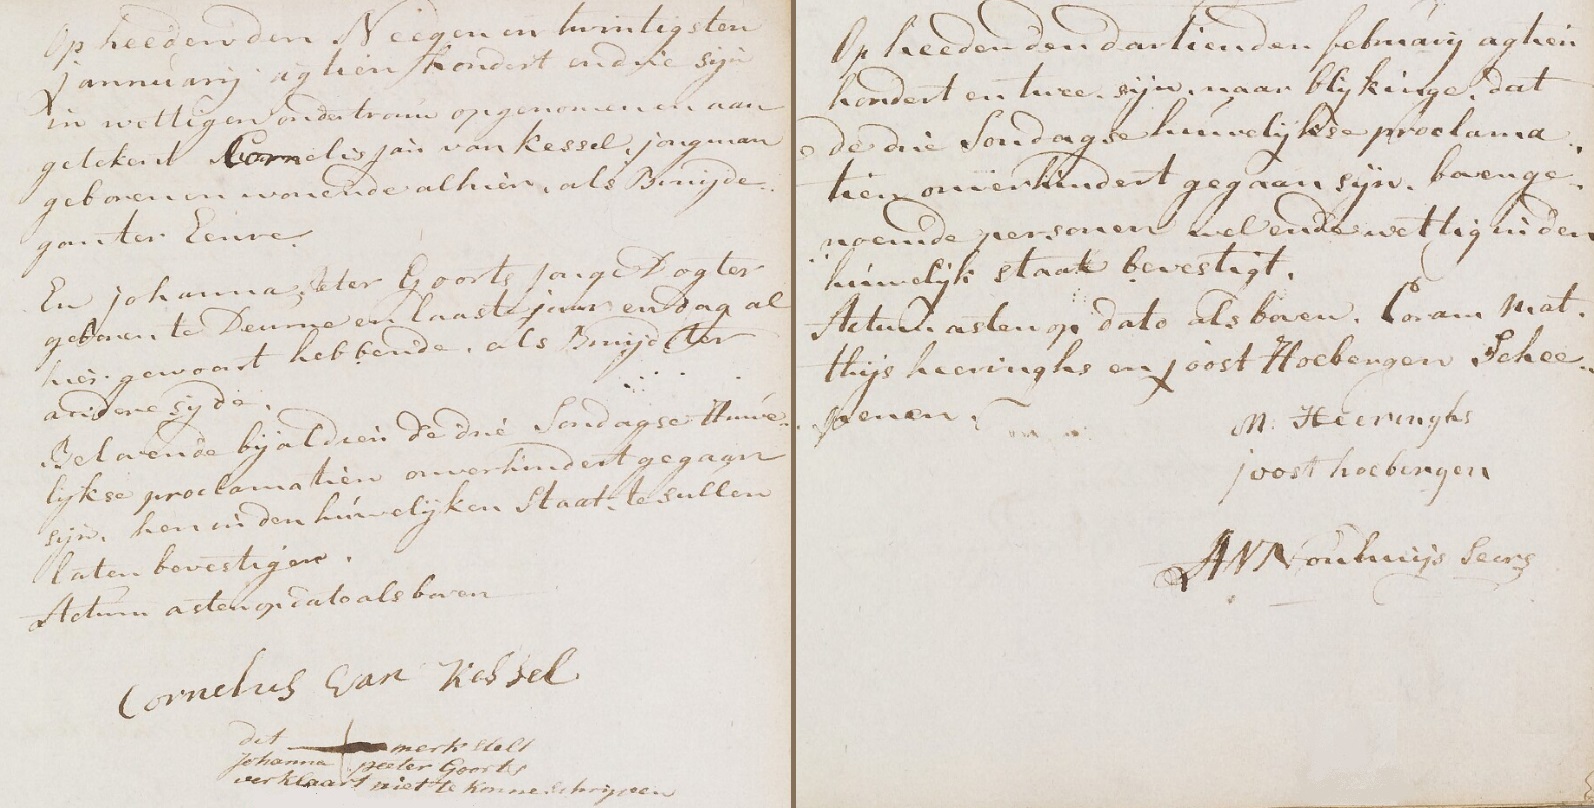 Op heeden den Neegen en twintigsten
jannuarij agtien hondert en drie sijn
in wettigen ondertrouw opgenomen en aan
getekent Cornelis jan van Kessel, jongman
geboren en wonende alhier, als Bruijde-
gom ter Eenre.
En johanna Peter Goorts jonge Dogter
geboren te Deurne en laaste jaar en dag al
hier gewoont hebbende, als Bruijd ter
andere syde.
Belovende bij aldien de drie Sondagse Huwe-
lijkse proclamatien onverhindert gegaan
sijn, hen in den huwelijken Staat te sullen
laten bevestigen.
Actum asten op dato als boven
Cornelus van Kessel
dit merk stelt
Johanna peeter Goorts
verklaart niet te konne schrijven
Op heeden den dartienden februarij agtien
hondert en twee sijn, naar blykinge, dat
de drie Sondagse huwelijkse proclama
tien onverhindert gegaan sijn, bovenge-
noemde personen wel ende wettig in den
huwelijk staat bevestigt.
Actum asten op dato als boven. Coram Mat-
thijs heeringhs en joost Hoebergen Schee-
penen.
M: Heeringhs
joost hoebergen
Secrs